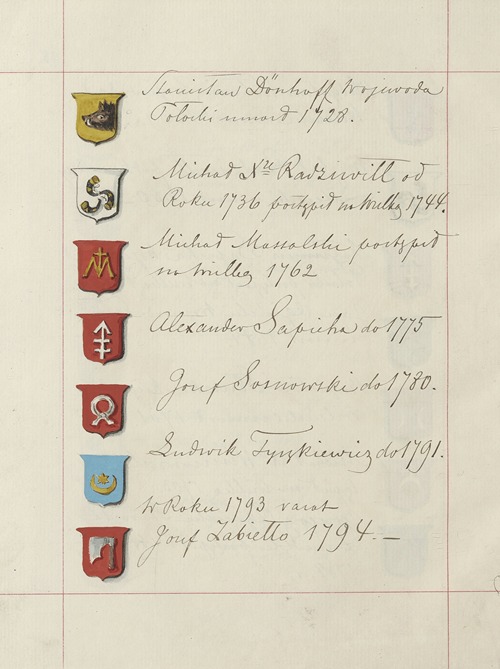 Stanisław Dönhoff Wojewoda
Połocki umarł 1728.
Michał Xże Radziwiłł od
Roku 1736 postąpił na Wielką 1744.
Michał Massalski postąpił
na Wielką 1762
Alexander Sapieha do 1775
Józef Sosnowski do 1780.
Ludwik Tyszkiewicz do 1791.
W Roku 1793 vacat
Józef Zabiełło 1794. —